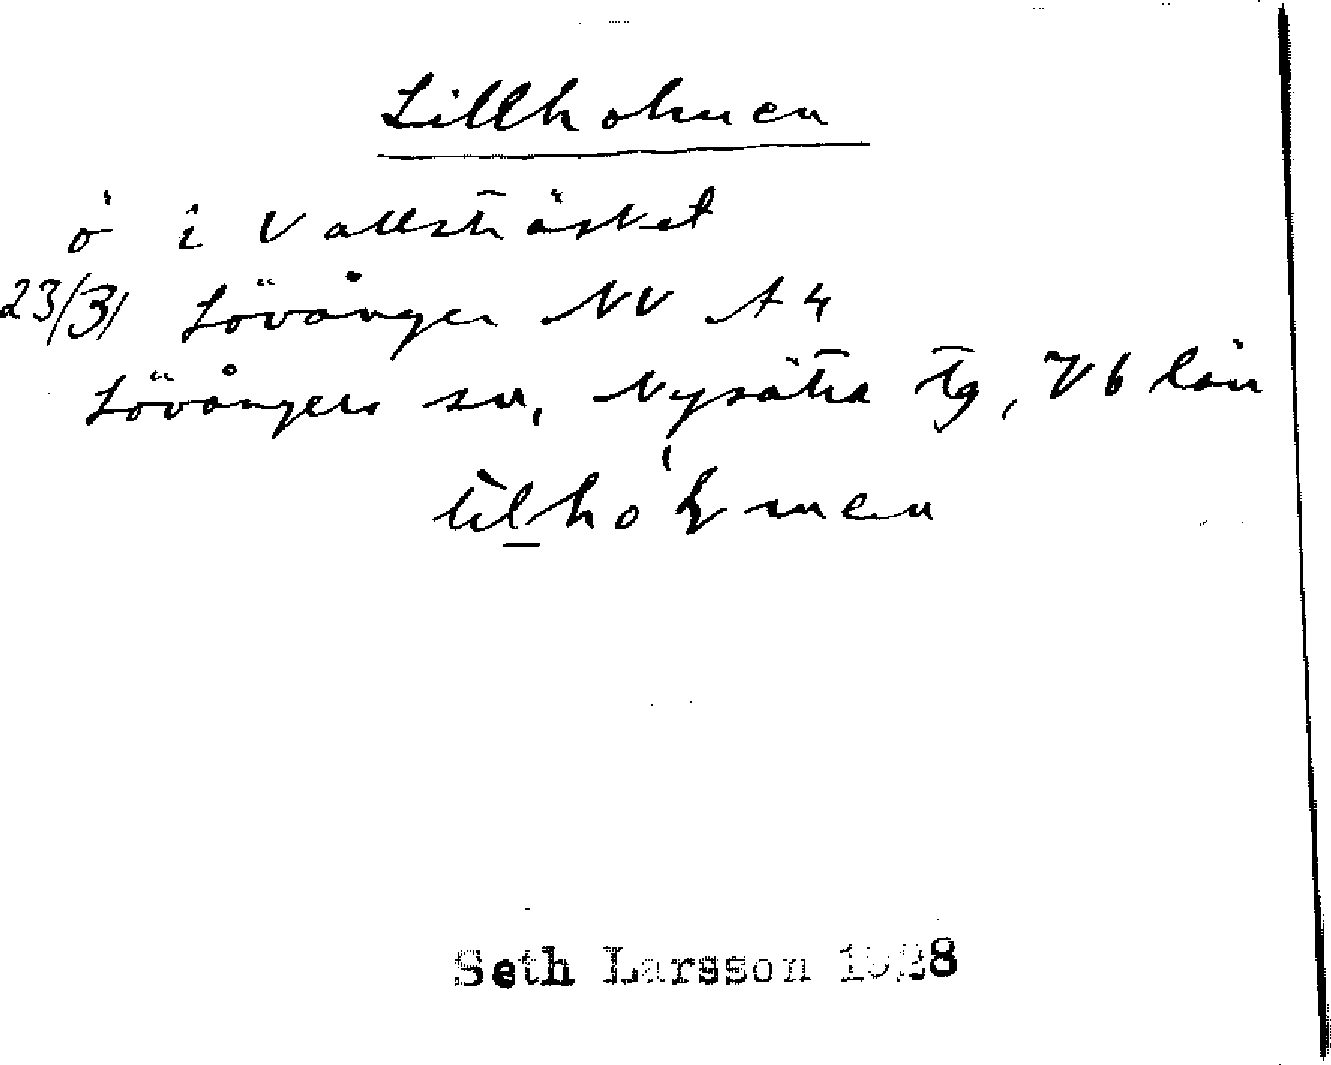 Lillholmen
ö i Vallsträsket
23/31 Lövånger NV A 4
Lövångers sn, Nysätra tg, Vb län
Seth Larsson 1928